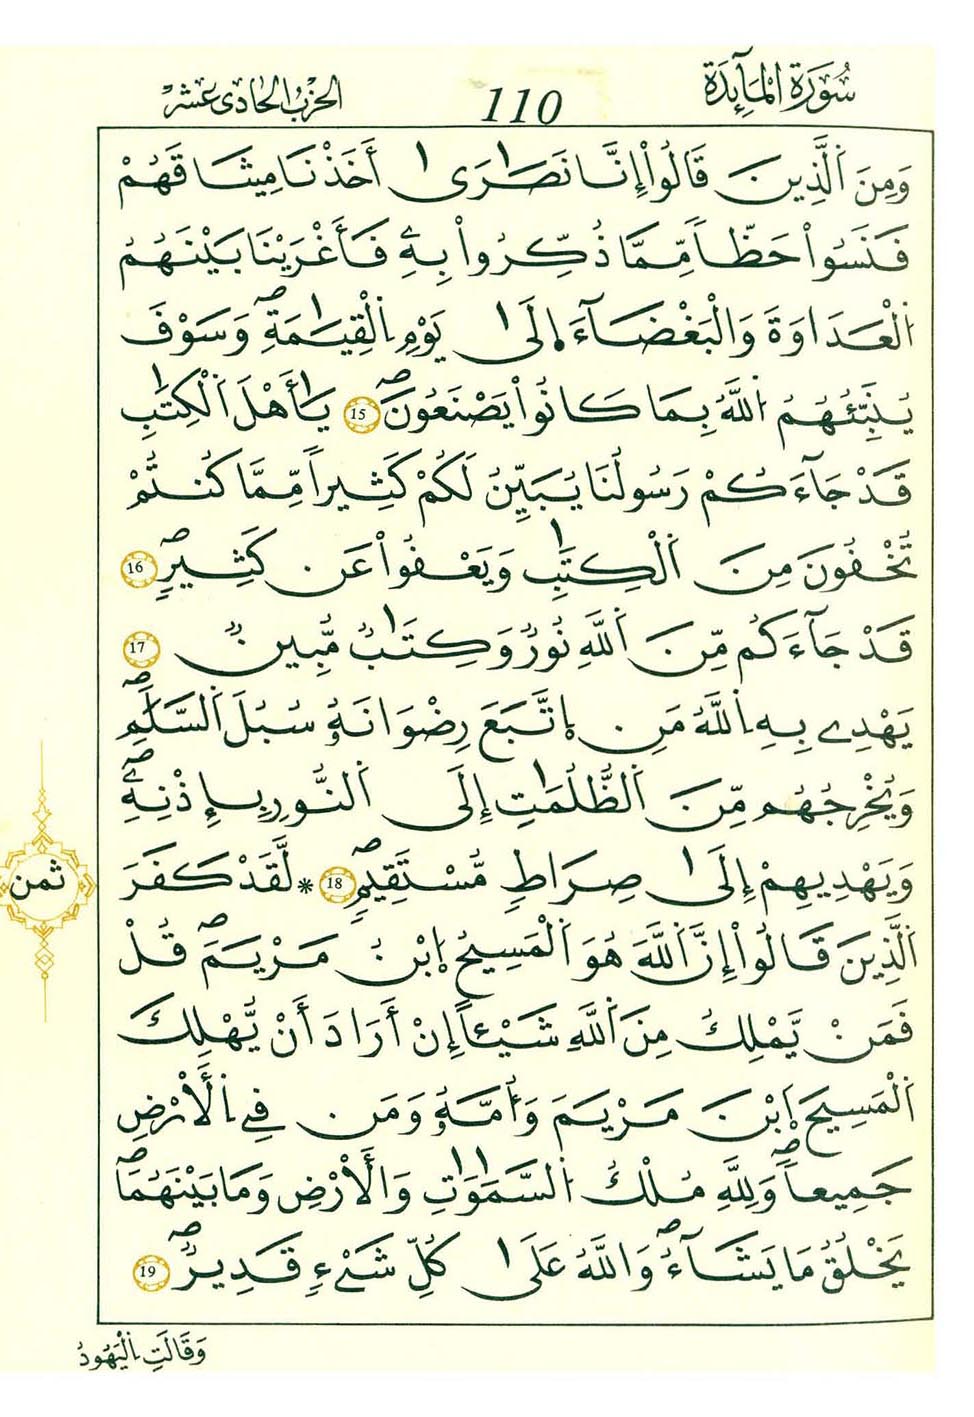 سُورَةُ الْمَآئِدَةِ
110
الحزب الحادى عشر
وَمِنَ اَ۬لذِينَ قَالُوٓاْ إِنَّا نَصَٰر۪ىٰٓ أَخَذْنَا مِيثَٰقَهُمْ
فَنَسُواْ حَظّاٗ مِّمَّا ذُكِّرُواْ بِهِۦ فَأَغْرَيْنَا بَيْنَهُمُ
اُ۬لْعَدَاوَةَ وَالْبَغْضَآءَ اِ۪لَىٰ يَوْمِ اِ۬لْقِيَٰمَةِۖ وَسَوْفَ
يُنَبِّئُهُمُ اُ۬للَّهُ بِمَا كَانُواْ يَصْنَعُونَۖ 15 يَٰٓأَهْلَ اَ۬لْكِتَٰبِ
قَدْ جَآءَكُمْ رَسُولُنَا يُبَيِّنُ لَكُمْ كَثِيراٗ مِّمَّا كُنتُمْ
تُخْفُونَ مِنَ اَ۬لْكِتَٰبِ وَيَعْفُواْ عَن كَثِيرٖۖ 16
قَدْ جَآءَكُم مِّنَ اَ۬للَّهِ نُورٞ وَكِتَٰبٞ مُّبِينٞ 17
يَهْدِے بِهِ اِ۬للَّهُ مَنِ اِ۪تَّبَعَ رِضْوَانَهُۥ سُبُلَ اَ۬لسَّلَٰمِۖ
وَيُخْرِجُهُم مِّنَ اَ۬لظُّلُمَٰتِ إِلَى اَ۬لنُّورِ بِإِذْنِهِۦۖ
وَيَهْدِيهِمْ إِلَىٰ صِرَاطٖ مُّسْتَقِيمٖۖ 18 * لَّقَدْ كَفَرَ
ثمن
اَ۬لذِينَ قَالُوٓاْ إِنَّ اَ۬للَّهَ هُوَ اَ۬لْمَسِيحُ اُ۪بْنُ مَرْيَمَۖ قُلْ
فَمَنْ يَّمْلِكُ مِنَ اَ۬للَّهِ شَيْـٔاً إِنْ أَرَادَ أَنْ يُّهْلِكَ
اَ۬لْمَسِيحَ اَ۪بْنَ مَرْيَمَ وَأُمَّهُۥ وَمَن فِے اِ۬لْأَرْضِ
جَمِيعاٗۖ وَلِلهِ مُلْكُ اُ۬لسَّمَٰوَٰتِ وَالْأَرْضِ وَمَا بَيْنَهُمَاۖ
يَخْلُقُ مَا يَشَآءُۖ وَاللَّهُ عَلَىٰ كُلِّ شَےْءٖ قَدِيرٞۖ 19
وَقَالَتِ اِ۬لْيَهُودُ